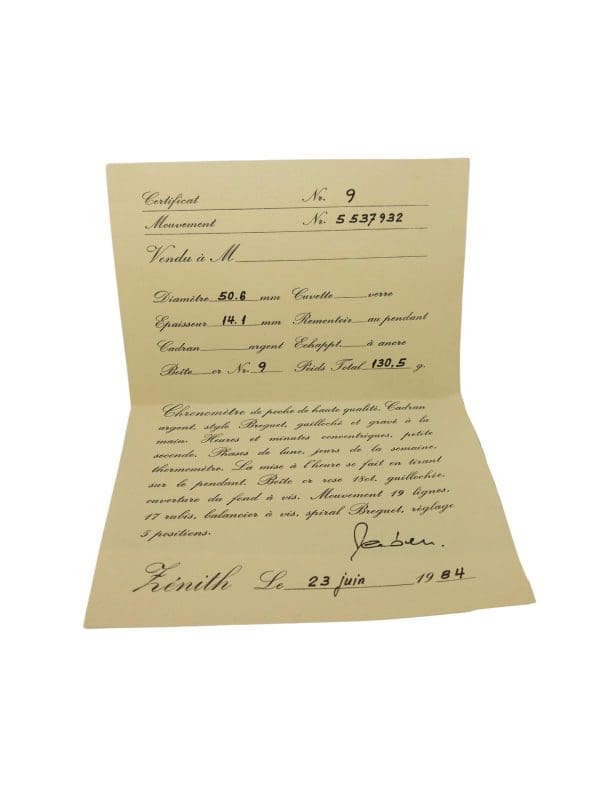 Certificat Nr. 9
Mouvement Nr. 5 537932
Vendu à M
Diamètre 50.6 mm Cuvette verre
Epaisseur 14.1 mm Remontoir au pendant
Cadran argent Echappt. à ancre
Boîte or Nr. 9 Poids Total 130,5 g.
Chronomètre de poche de haute qualité. Cadran
argent, style Breguet, guilloché et gravé à la
main. Heures et minutes concentriques, petite
seconde. Phases de lune, jours de la semaine,
thermomètre. La mise à l'heure se fait en tirant
sur le pendant. Boîte or rose 18ct. guillochée,
ouverture du fond à vis. Mouvement 19 lignes,
17 rubis, balancier à vis, spiral Breguet, réglage
5 positions.
Zénith Le 23 juin 1984